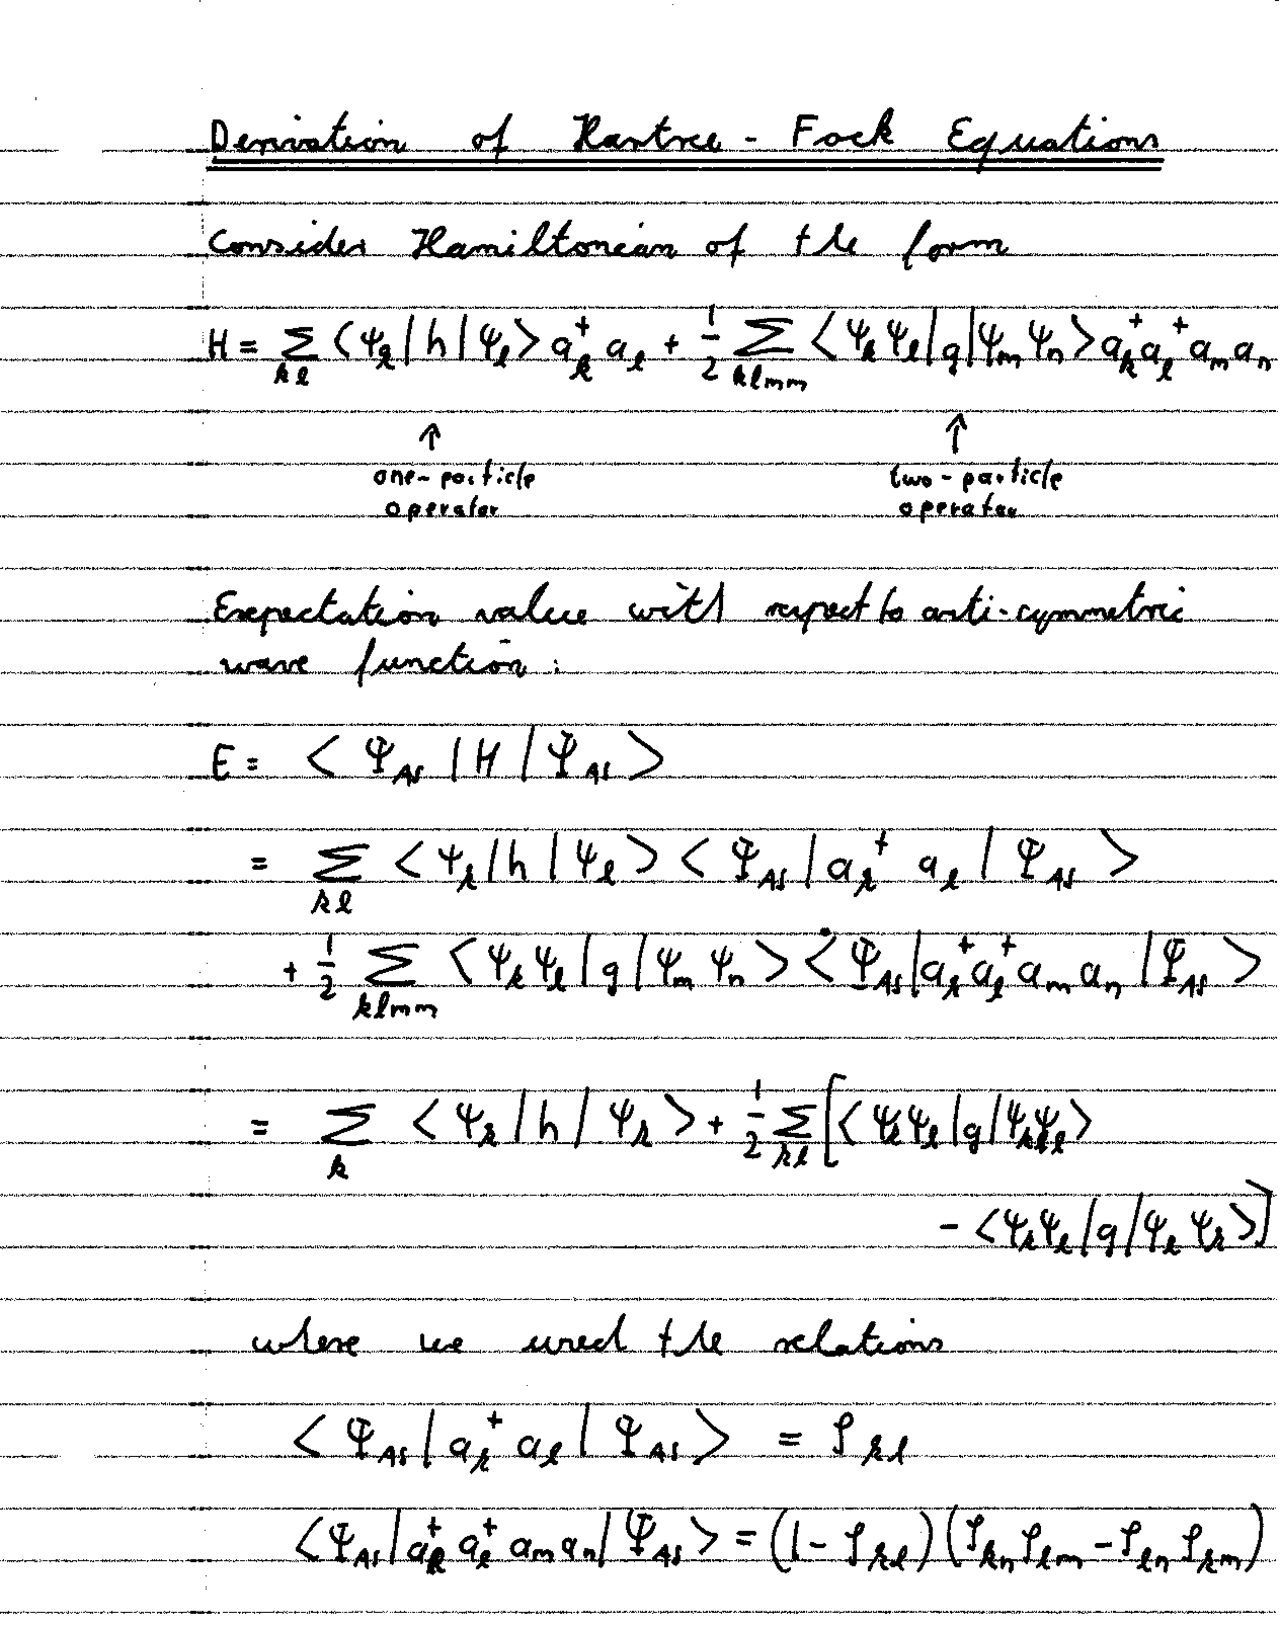 Derivation of Hartree - Fock Equations
Consider Hamiltonian of the form
H = ∑_{kl} ⟨ψ_k|h|ψ_l⟩ a_k^+ a_l + 1/2 ∑_{klmn} ⟨ψ_k ψ_l|g|ψ_m ψ_n⟩ a_k^+ a_l^+ a_m a_n
↑ ↑
one-particle two-particle
operator operator
Expectation value with respect to anti-symmetric
wave function:
E = ⟨Ψ_AS|H|Ψ_AS⟩
= ∑_{kl} ⟨ψ_k|h|ψ_l⟩ ⟨Ψ_AS|a_k^+ a_l|Ψ_AS⟩
+ 1/2 ∑_{klmn} ⟨ψ_k ψ_l|g|ψ_m ψ_n⟩ ⟨Ψ_AS|a_k^+ a_l^+ a_m a_n|Ψ_AS⟩
= ∑_k ⟨ψ_k|h|ψ_k⟩ + 1/2 ∑_{kl} [⟨ψ_k ψ_l|g|ψ_k ψ_l⟩
- ⟨ψ_k ψ_l|g|ψ_l ψ_k⟩]
where we used the relations
⟨Ψ_AS|a_k^+ a_l|Ψ_AS⟩ = δ_{kl}
⟨Ψ_AS|a_k^+ a_l^+ a_m a_n|Ψ_AS⟩ = (1 - δ_{kl}) (δ_{kn} δ_{lm} - δ_{ln} δ_{km})